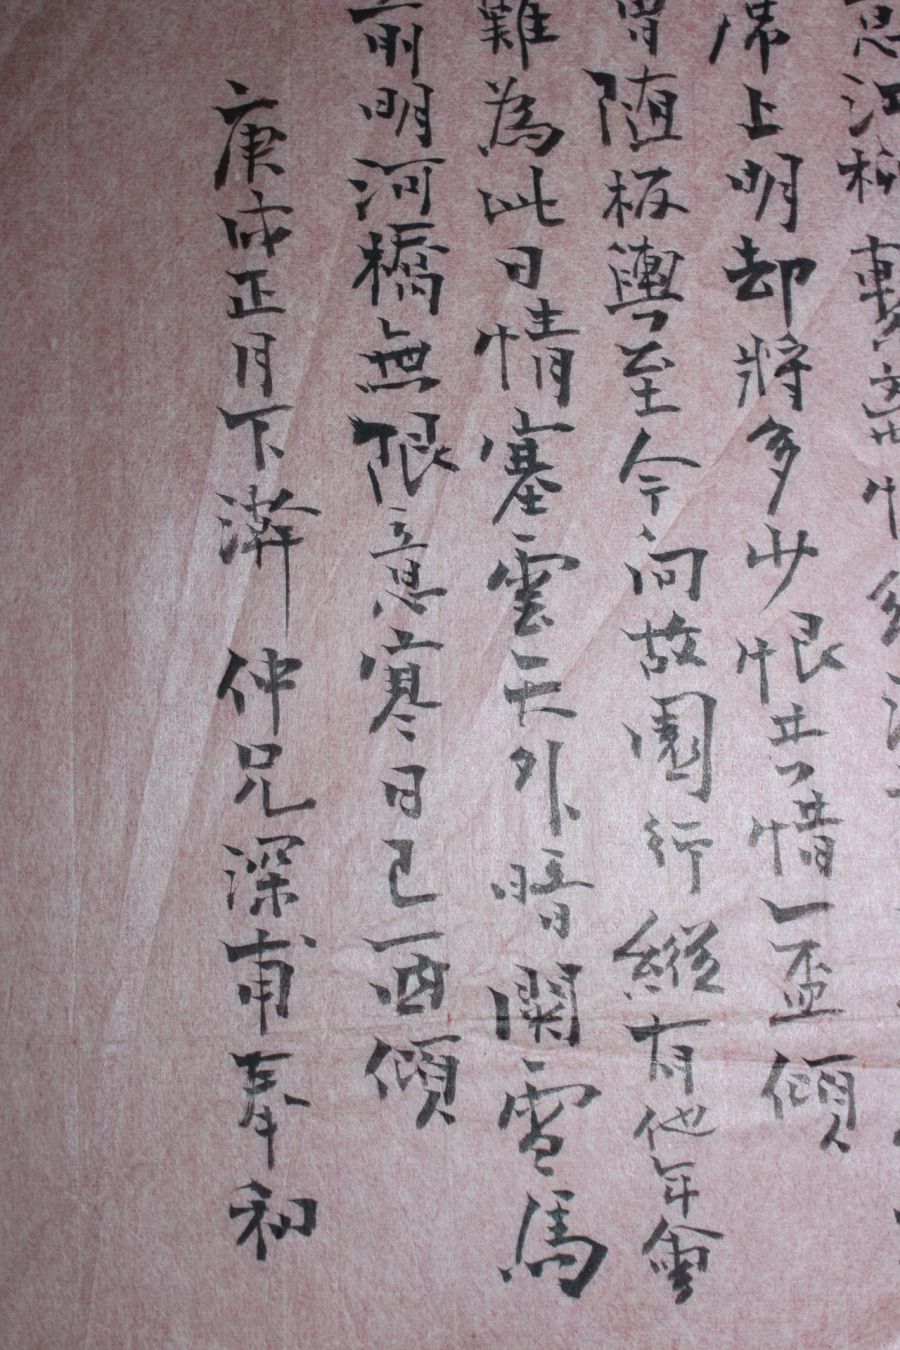 江柳
席上明却將多少恨去惜一盃傾
曾随板輿至今向故園行縱有他年會
難為此日情塞雲天外暗關雪馬
前明河橋無限意寒日已西傾
庚戌正月下澣 仲兄深甫奉和